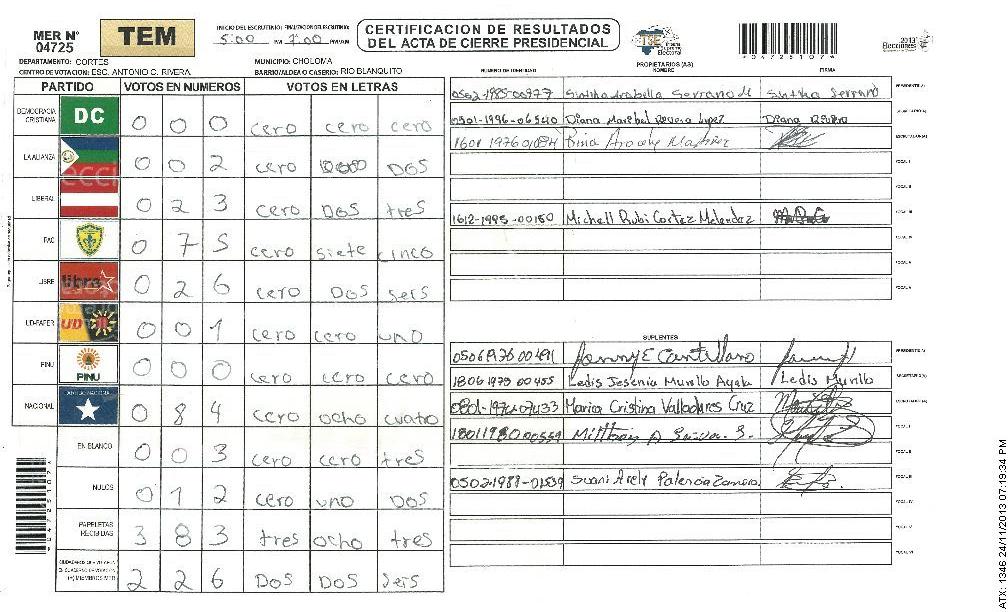 MER N° 04725
TEM
INICIO DEL ESCRUTINIO: 5:00 PM FINALIZACION DEL ESCRUTINIO: 7:00 PM/AM
CERTIFICACION DE RESULTADOS
DEL ACTA DE CIERRE PRESIDENCIAL
TSE Tribunal Supremo Electoral
04725107
2013 Elecciones
DEPARTAMENTO: CORTES
MUNICIPIO: CHOLOMA
CENTRO DE VOTACION: ESC. ANTONIO C. RIVERA
BARRIO/ALDEA O CASERIO: RIO BLANQUITO
PARTIDO VOTOS EN NUMEROS VOTOS EN LETRAS
DEMOCRACIA CRISTIANA DC 0 0 0 cero cero cero
LA ALIANZA 0 0 2 cero DOS
LIBERAL 0 2 3 cero DOS tres
PAC 0 7 5 cero siete cinco
LIBRE libre 0 2 6 cero DOS seis
UD-FAPER UD 0 0 1 cero cero uno
PINU PINU 0 0 0 cero cero cero
NACIONAL PARTIDO NACIONAL 0 8 4 cero ocho cuatro
EN BLANCO 0 0 3 cero cero tres
NULOS 0 1 2 cero uno DOS
PAPELETAS RECIBIDAS 3 8 3 tres ocho tres
2 2 6 DOS DOS seis
PROPIETARIOS (AS)
NUMERO DE IDENTIDAD NOMBRE FIRMA
0502-1985-00977 Serrano Serrano PRESIDENTE(A)
0501-1996-06540 Diana Maribel Rivera Lopez Diana Rivera SECRETARIO(A)
Martinez ESCRUTADOR(A)
VOCAL I
VOCAL II
1612-1995-00150 Michell Rubi Cortez Melendez VOCAL III
VOCAL IV
VOCAL V
VOCAL VI
SUPLENTES
Jenny E Cantillano PRESIDENTE(A)
1806 1973 00455 Ledis Jesenia Murillo Ayala Ledis Murillo SECRETARIO(A)
0801-1974-07433 Maria Cristina Valladares Cruz ESCRUTADOR(A)
1801 1980 00559 VOCAL I
VOCAL II
0502-1988-01539 Suani Arely Palencia Zamora VOCAL III
VOCAL IV
VOCAL V
VOCAL VI
ATX: 1346 24/11/2013 07:19:34 PM